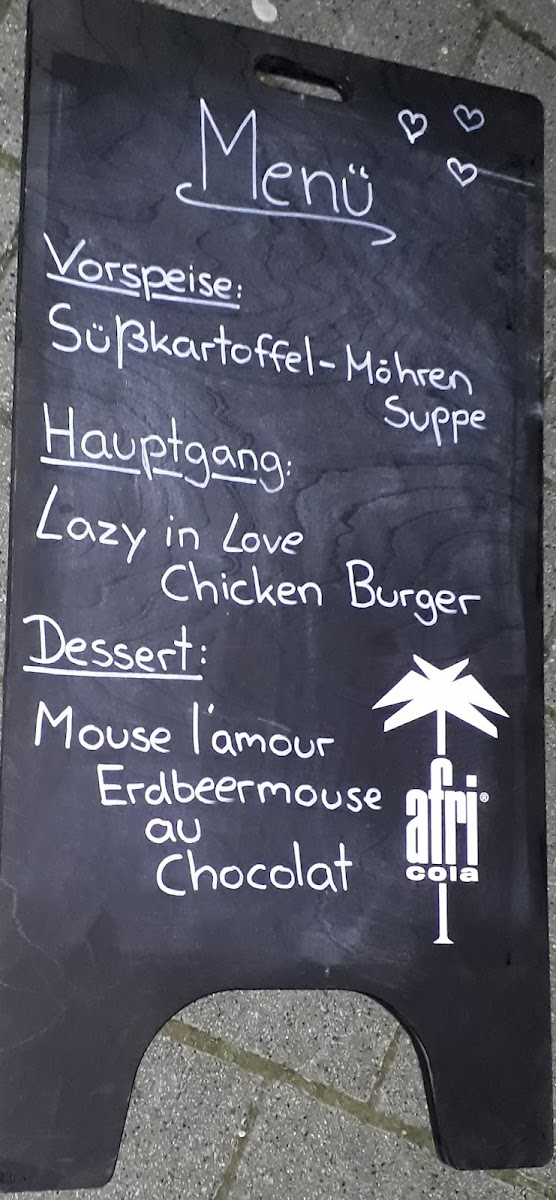 Menü
Vorspeise:
Süßkartoffel-Möhren
Suppe
Hauptgang:
Lazy in Love
Chicken Burger
Dessert:
Mouse l'amour
Erdbeermouse
au
Chocolat
afri®
cola